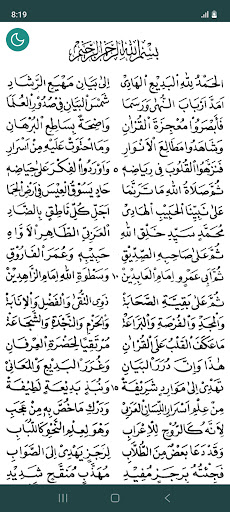 8:19
بِسْمِ اللهِ الرَّحْمٰنِ الرَّحِيمِ
الحَمْدُ لِلّٰهِ الْبَدِيعِ الْهَادِي إِلَى بَيَانِ مَهْيَعِ الرَّشَادِ
أَمَدَّ أَرْبَابَ النُّهَى وَرَسَمَا شَمْسَ الْبَيَانِ فِي صُدُورِ الْعُلَمَا
فَأَبْصَرُوا مُعْجِزَةَ الْقُرْآنِ وَاضِحَةً بِسَاطِعِ الْبُرْهَانِ
وَشَاهَدُوا مَطَالِعَ الْأَنْوَارِ وَمَا احْتَوَتْ عَلَيْهِ مِنْ أَسْرَارِ
فَنَزَّهُوا الْقُلُوبَ فِي رِيَاضِهِ وَأَوْرَدُوا الْفِكْرَ عَلَى حِيَاضِهِ
ثُمَّ صَلَاةُ اللهِ مَا تَرَنَّمَا حَادٍ يَسُوقُ الْعِيسَ فِي أَرْضِ الْحِمَى
عَلَى نَبِيِّنَا الْحَبِيبِ الْهَادِي أَجَلِّ كُلِّ نَاطِقٍ بِالضَّادِ
مُحَمَّدٍ سَيِّدِ خَلْقِ اللهِ الْعَرَبِيِّ الطَّاهِرِ الْأَوَّاهِ
ثُمَّ عَلَى صَاحِبِهِ الصِّدِّيقِ حَبِيبِهِ وَعُمَرَ الْفَارُوقِ
ثُمَّ أَبِي عَمْرٍو إِمَامِ الْعَابِدِينْ ١٠ وَسَطْوَةِ اللهِ إِمَامِ الزَّاهِدِينْ
ثُمَّ عَلَى بَقِيَّةِ الصَّحَابَةِ ذَوِي التُّقَى وَالْفَضْلِ وَالْإِنَابَةِ
وَالْمَجْدِ وَالْفُرْصَةِ وَالْبَرَاعَةِ وَالْحَزْمِ وَالنَّجْدَةِ وَالشَّجَاعَةِ
مَا عَكَفَ الْقَلْبُ عَلَى الْقُرْآنِ مُرْتَقِيًا لِحَضْرَةِ الْعِرْفَانِ
هٰذَا وَإِنَّ دُرَرَ الْبَيَانِ وَغُرَرَ الْبَدِيعِ وَالْمَعَانِي
تَهْدِي إِلَى مَوَارِدٍ شَرِيفَةْ ١٥ وَنُبَذٍ بَدِيعَةٍ لَطِيفَةْ
مِنْ عِلْمِ أَسْرَارِ اللِّسَانِ الْعَرَبِي وَدَرْكِ مَا خُصَّ بِهِ مِنْ عَجَبِ
لِأَنَّهُ كَالرُّوحِ لِلْإِعْرَابِ وَهْوَ لِعِلْمِ النَّحْوِ كَاللُّبَابِ
وَقَدْ دَعَا بَعْضٌ مِنَ الطُّلَّابِ لِرَجَزٍ يَهْدِي إِلَى الصَّوَابِ
فَجِئْتُهُ بِرَجَزٍ مُفِيدِ مُهَذَّبٍ مُنَقَّحٍ سَدِيدِ